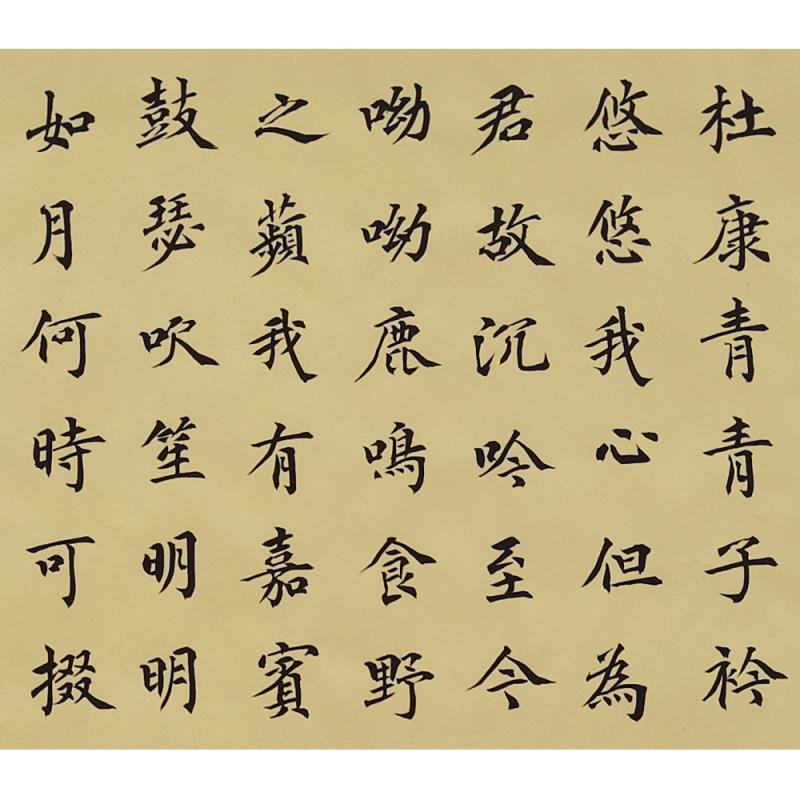 杜康青青子衿
悠悠我心但為
君故沉吟至今
呦呦鹿鳴食野
之蘋我有嘉賓
鼓瑟吹笙明明
如月何時可掇